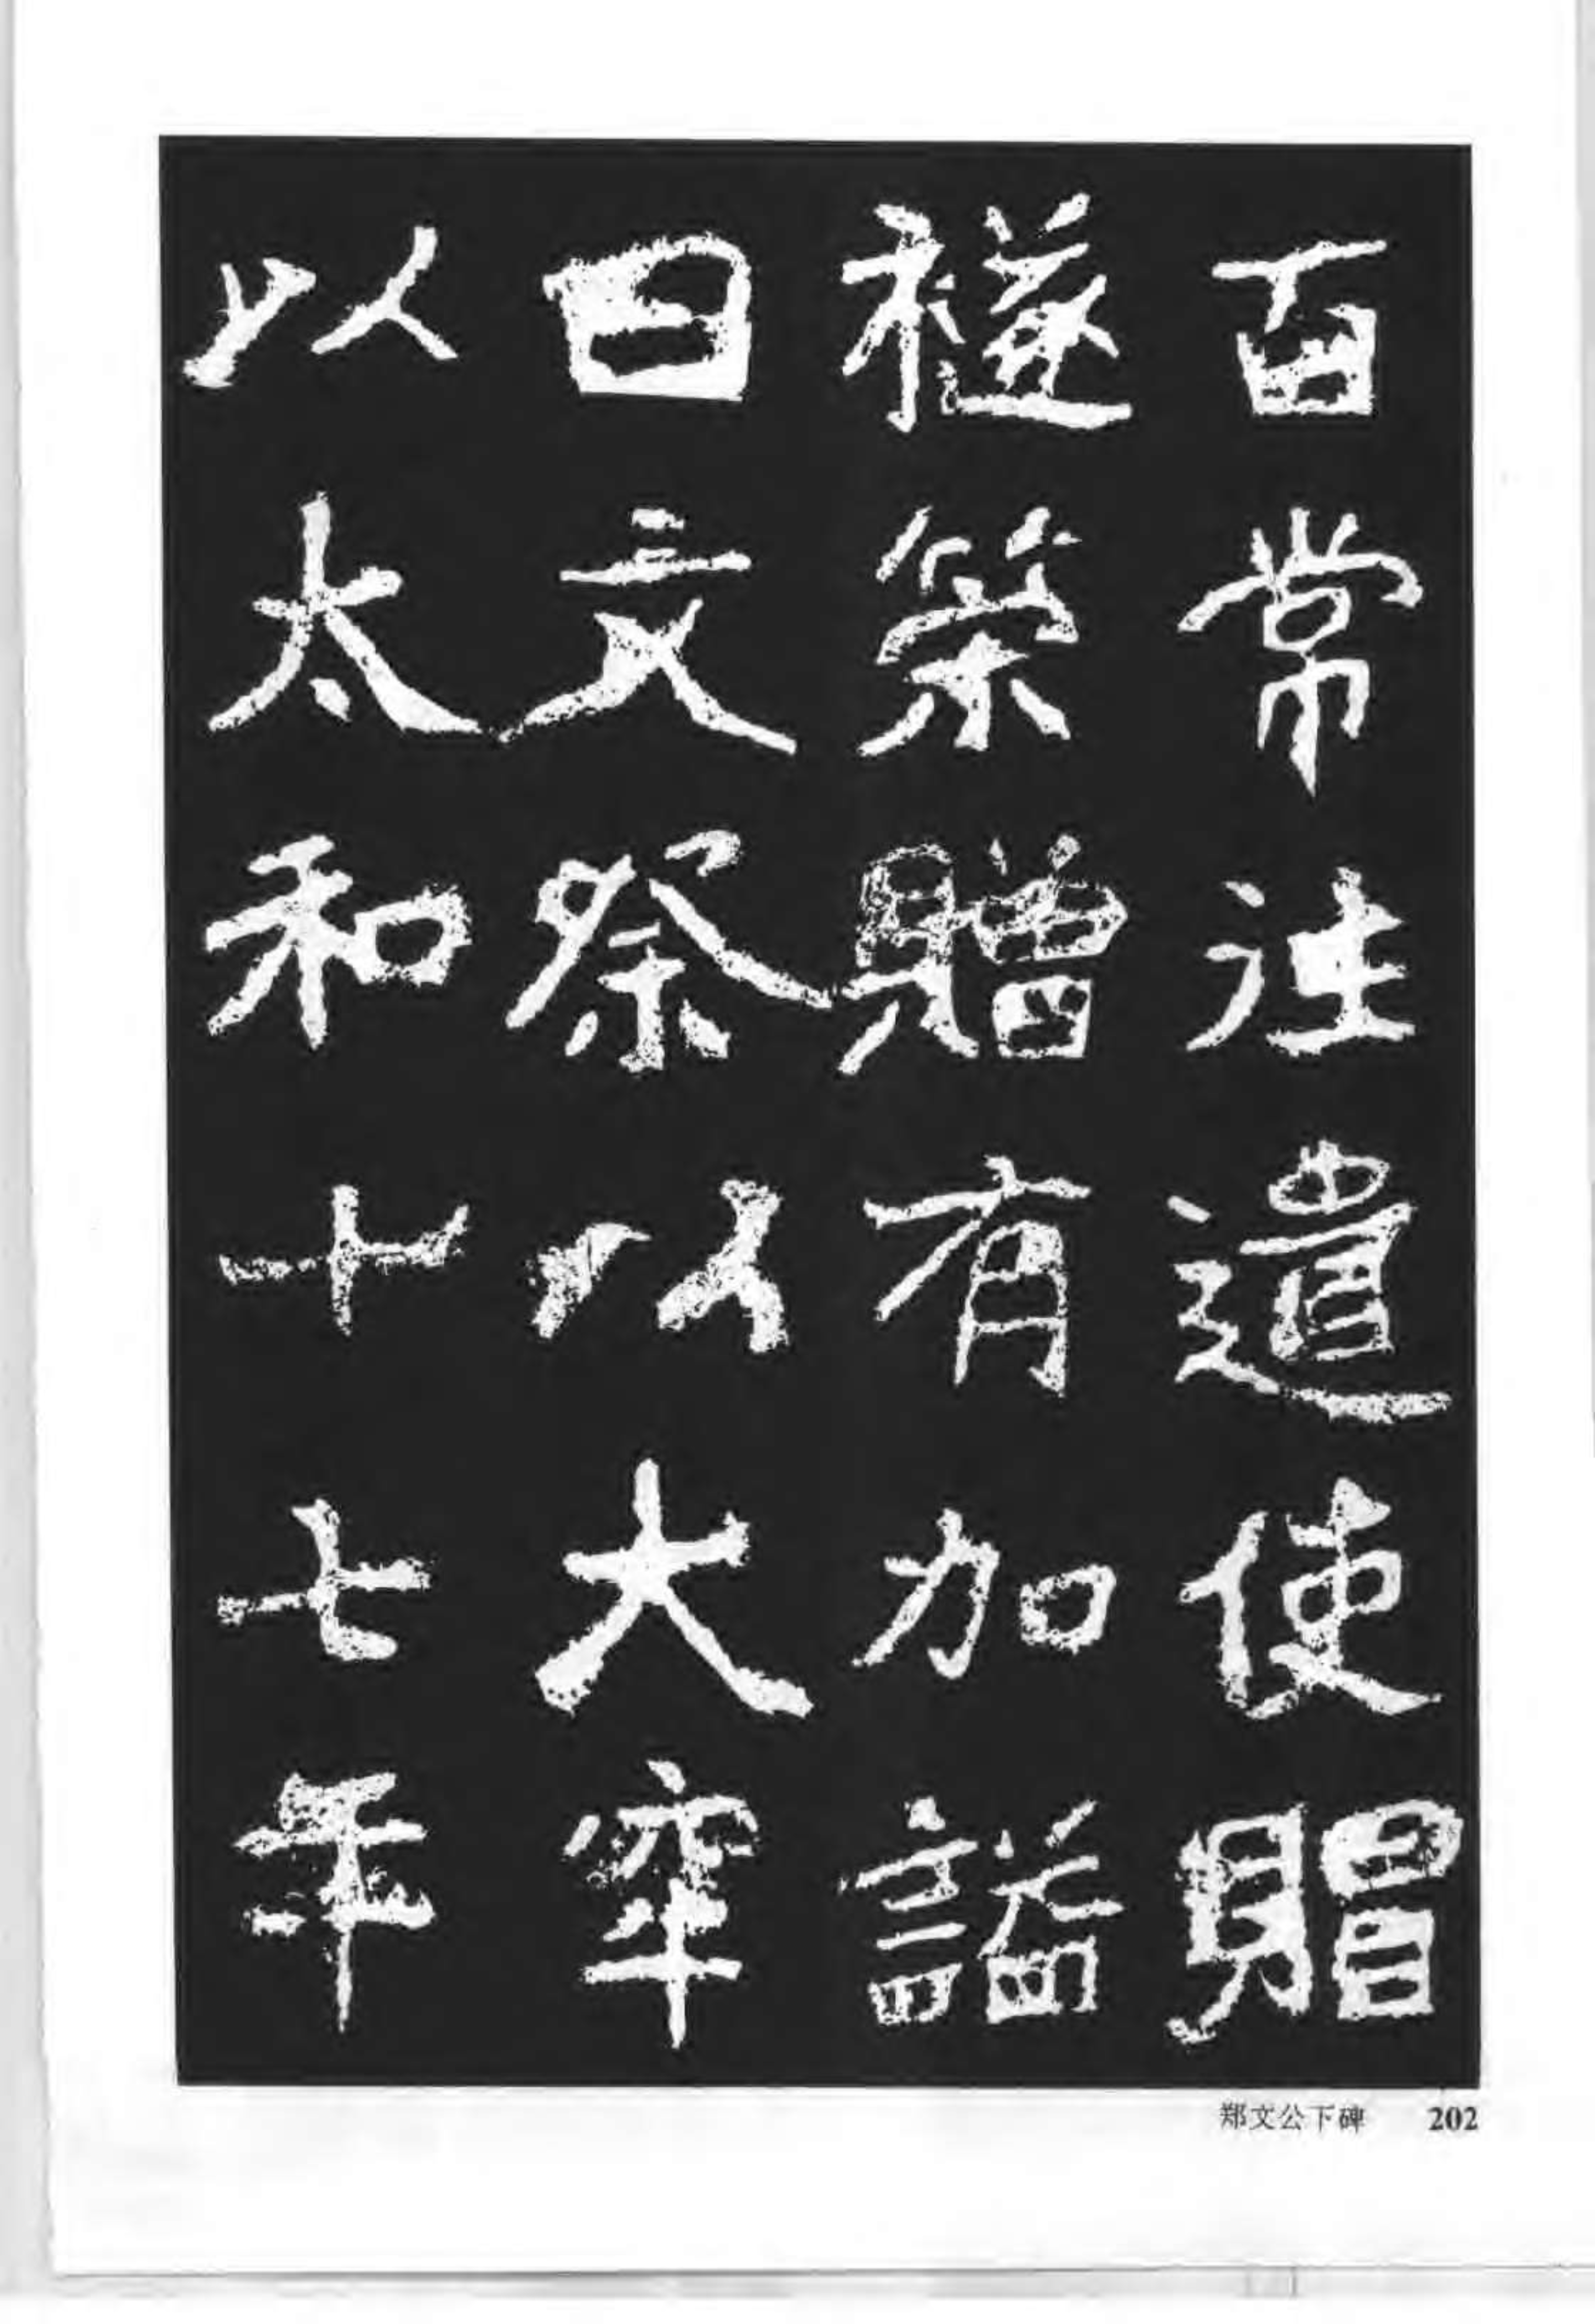 百常注遣使賵
襚策贈有加謚
曰文祭以大窂
以太和十七年
郑文公下碑 202